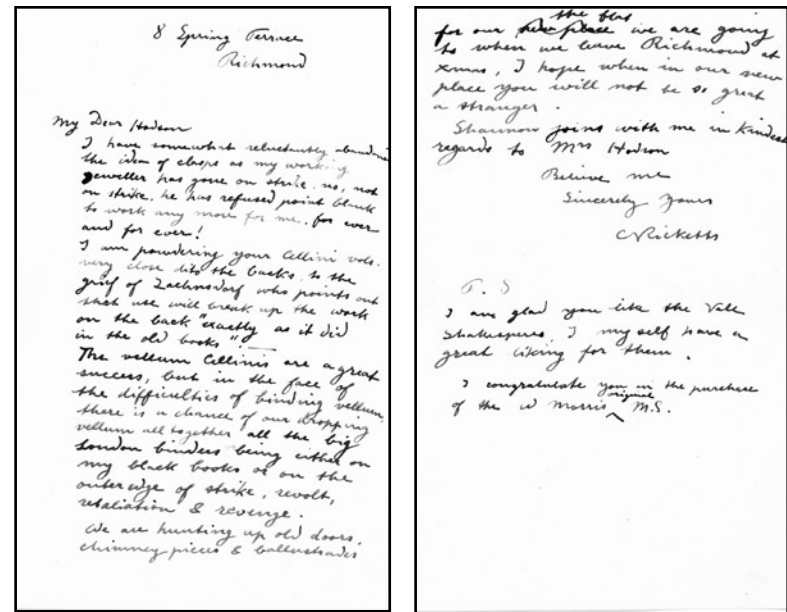 8 Spring Terrace
Richmond
My Dear Hodson
I have somewhat reluctantly abandoned
the idea of clasps as my working
jeweller has gone on strike. no, not
on strike. he has refused point blank
to work any more for me. for ever
and for ever!
I am powdering your Cellini vols.
very close into the backs, to the
grief of Zaehnsdorf who points out
that use will break up the work
on the back "exactly as it did
in the old books".
The vellum Cellinis are a great
success, but in the face of
the difficulties of binding vellum
there is a chance of our dropping
vellum all together all the big
London binders being either on
my black books or on the
outer edge of strike, revolt,
retaliation & revenge.
We are hunting up old doors,
chimney pieces & ballustrades
for our new place the flat we are going
to when we leave Richmond at
Xmas, I hope when in our new
place you will not be so great
a stranger.
Shannon joins with me in kindest
regards to Mrs Hodson
Believe me
Sincerely Yours
CRicketts
P.S
I am glad you like the Vale
Shakesperes, I my self have a
great liking for them.
I congratulate you in the purchase
of the W Morris original M.S.